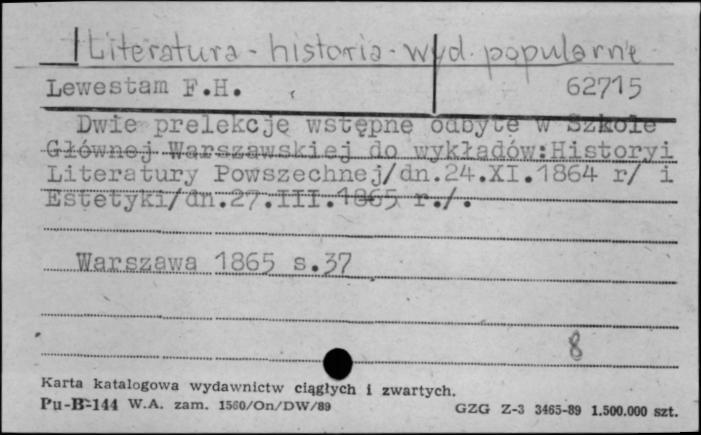 Literatura - historia - wyd. popularne
Lewestam F.H. 62715
Dwie prelekcje wstępne odbyte w Szkole
Głównej Warszawskiej do wykładów:Historyi
Literatury Powszechnej/dn.24.XI.1864 r/ i
Estetyki/dn.27.III.1865 r./.
Warszawa 1865 s.37
8
Karta katalogowa wydawnictw ciągłych i zwartych.
Pu-B-144 W.A. zam. 1560/On/DW/89 GZG Z-3 3465-89 1.500.000 szt.